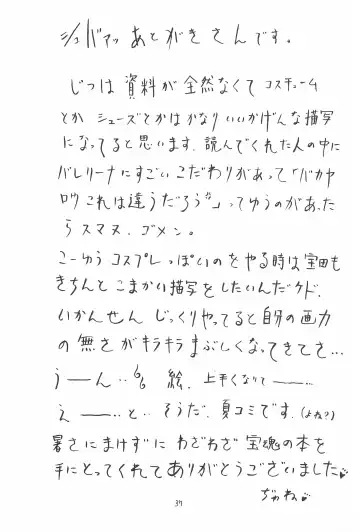 シュバァッ あとがきさんです。
じつは 資料が全然なくて コスチューム
とか シューズとかはかなりいいかげんな描写
になってると思います。読んでくれた人の中に
バレリーナにすごいこだわりがあって「バカヤ
ロウ これは違うだろう」ってゆうのがあった
らスマヌ、ゴメン。
こーゆうコスプレっぽいのをやる時は宝田も
きちんとこまかい描写をしたいんだケド、
いかんせん じっくりやってると自分の画力
の無さがキラキラまぶしくなってきてさ…
うーん‥ 絵 上手くなりてーー
えーー‥と‥ そうだ、夏コミです。(よね?)
暑さにまけずに わざわざ 宝魂の本を
手にとってくれてありがとうございました
ぢゃね